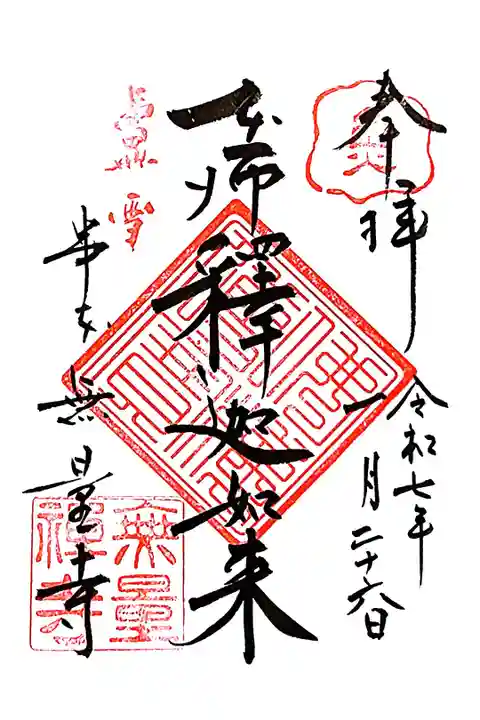 奉拝
令和七年
一月二十六日
本師釋迦如来
雪
串本 無量寺
無量
禪寺